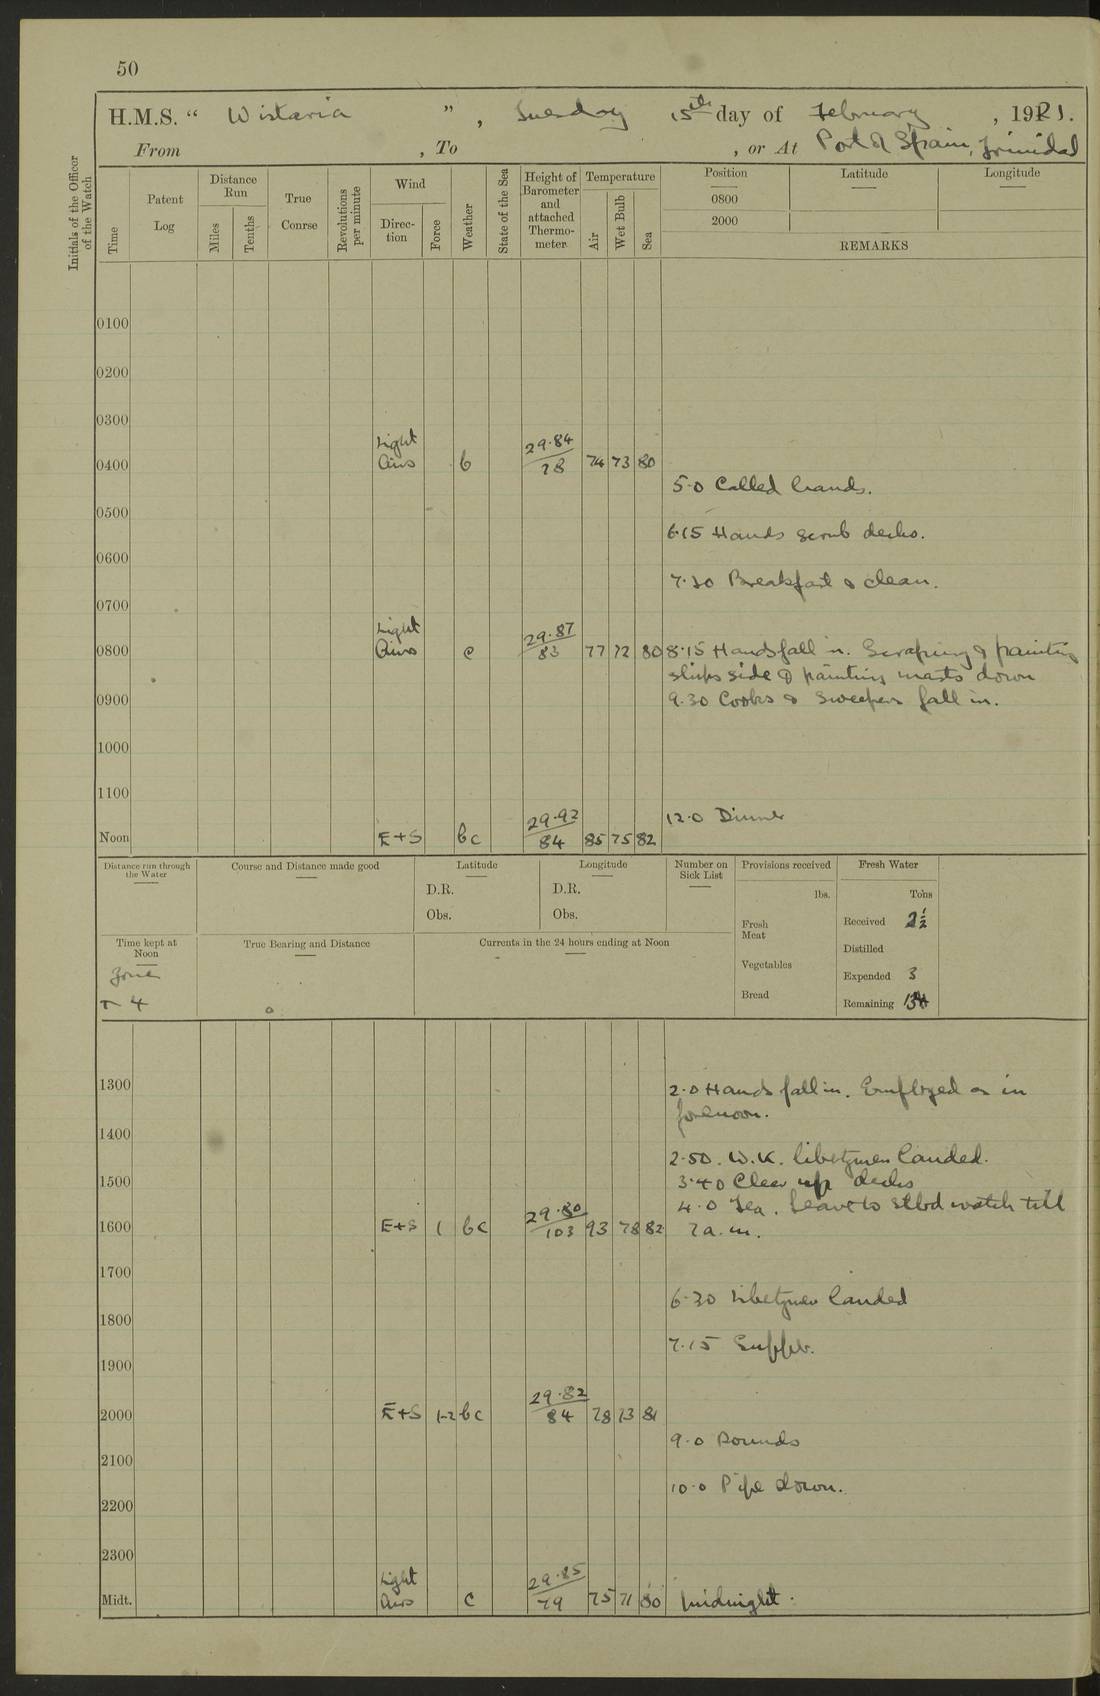 50
H.M.S. “ Wistaria ” , Tuesday 15th day of February , 1921.
From , To , or At Port of Spain, Trinidad
Initials of the Officer of the Watch
Time
Patent Log
Distance Run
Miles
Tenths
True Course
Revolutions per minute
Wind
Direction
Force
Weather
State of the Sea
Height of Barometer and attached Thermometer
Temperature
Air
Wet Bulb
Sea
Position Latitude Longitude
0800
2000
REMARKS
0100
0200
0300
0400 Light Airs b 29.84 78 74 73 80
5.0 Called hands.
0500
6.15 Hands scrub decks.
0600
7.30 Breakfast & clean.
0700
0800 Light Airs c 29.87 83 77 72 80 8.15 Hands fall in. Scraping & painting
ships side & painting masts down
0900 9.30 Cooks & Sweepers fall in.
1000
1100
12.0 Dinner
Noon E+S bc 29.92 84 85 75 82
Distance run through the Water
Course and Distance made good
Latitude
D.R.
Obs.
Longitude
D.R.
Obs.
Number on Sick List
Provisions received
lbs.
Fresh Meat
Vegetables
Bread
Fresh Water
Tons
Received 2½
Distilled
Expended 3
Remaining
Time kept at Noon
Zone
+ 4
True Bearing and Distance
Currents in the 24 hours ending at Noon
1300 2.0 Hands fall in. Employed as in
forenoon.
1400
2.50. W.K. libertymen landed.
1500 3.40 Clear up decks
4.0 Tea. Leave to stbd watch till
1600 E+S 1 bc 29.80 103 93 78 82 7 a.m.
1700
6.30 Libertymen landed
1800
7.15 Supper.
1900
2000 E+S 1-2 bc 29.82 84 78 73 81
9.0 Rounds
2100
10.0 Pipe down.
2200
2300
Midt. Light Airs c 29.85 79 75 71 80 Midnight.